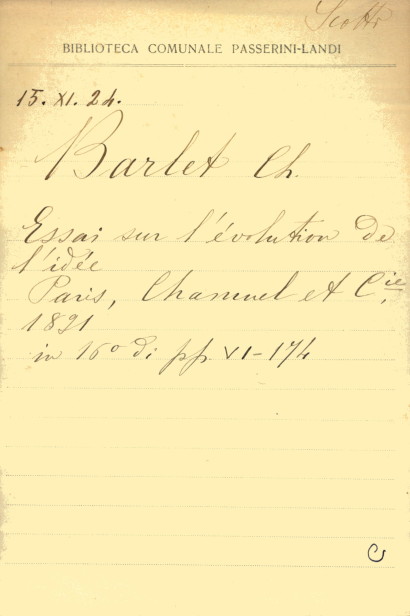 Scotti
BIBLIOTECA COMUNALE PASSERINI-LANDI
15. XI. 24.
Barlet Ch.
Essai sur l'évolution de
l'idée
Paris, Chamuel et C.ie,
1891
in 16º di pp. VI-174